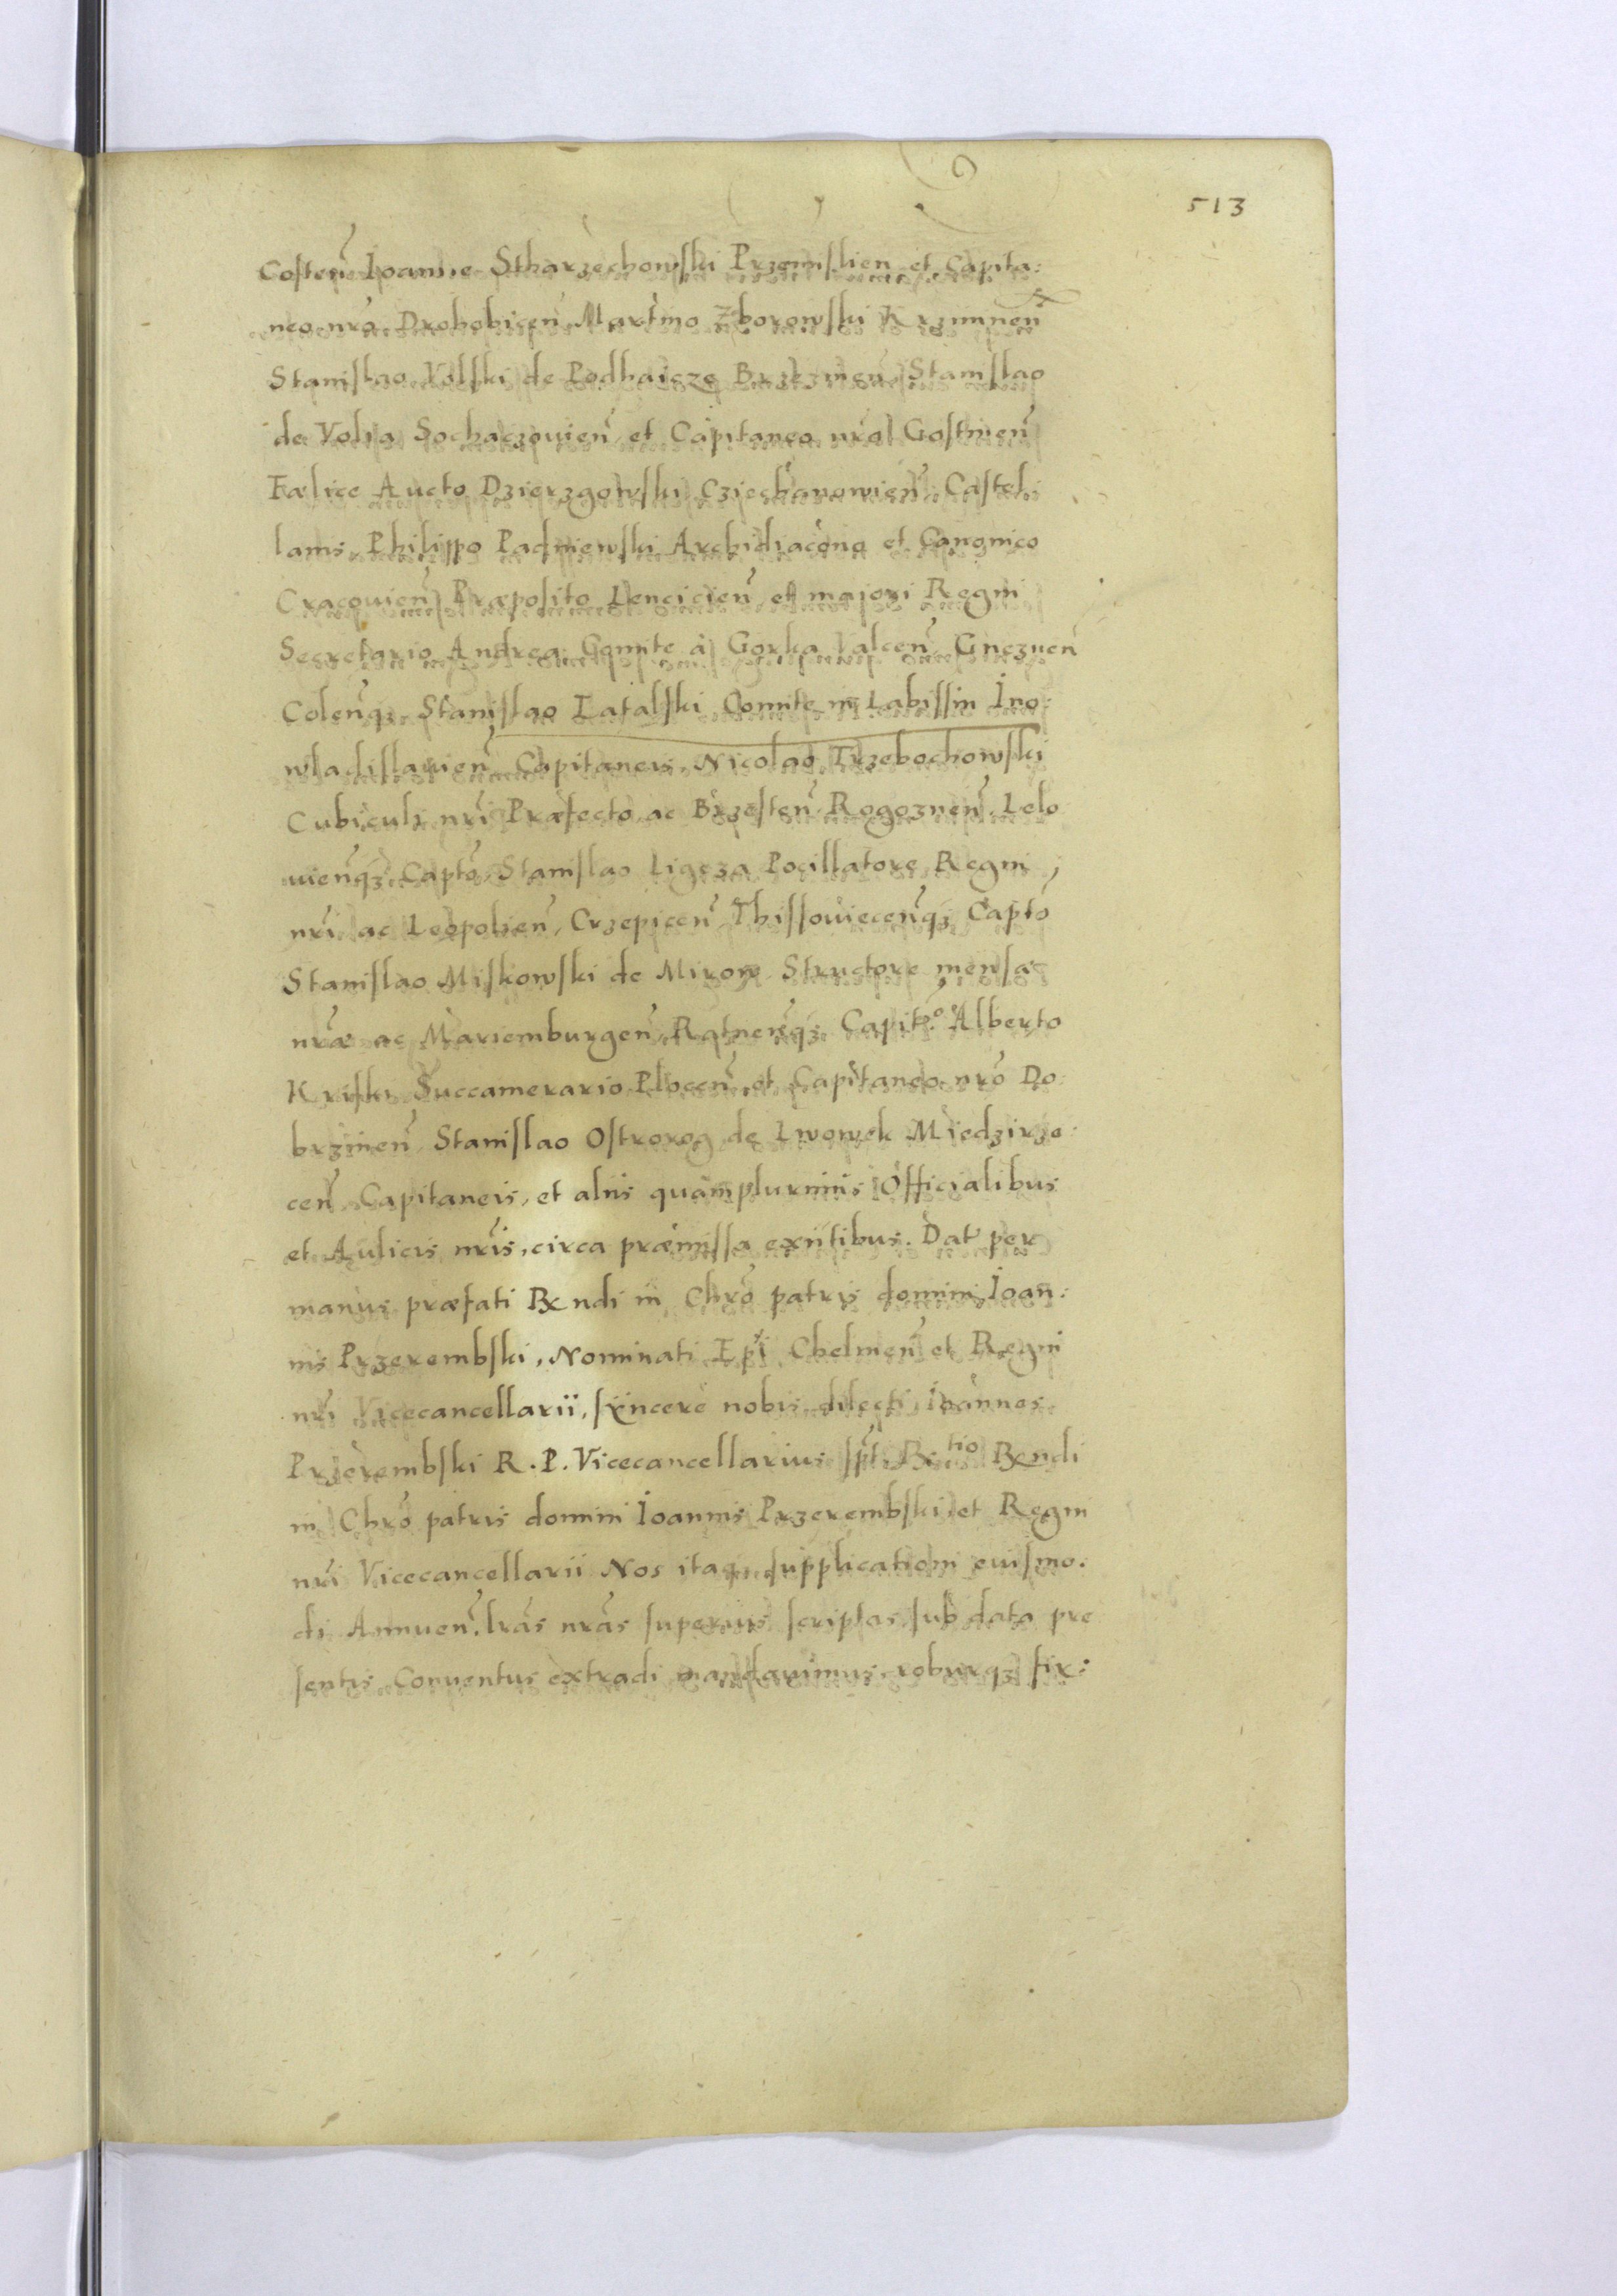 513
Costeñ Ioanne Stharzechowski Przemislien et Capita:
neo nro Drohobiceñ Martino Zborowski Krzinineñ
Stanislao Volski de Podhaicze Brzezineñ Stanislao
de Volia Sochaczouieñ et Capitaneo nro Gostineñ
Fælice Aucto Dzierzgowski Cziechanowieñ Castel:
lanis, Philippo Padniewski Archidiacono et Canonico
Cracouieñ Præposito Lencicieñ et majori Regni
Secretario Andrea Comite à Gorka Valceñ Gnezneñ
Coleñqz Stanislao Latalski Comite in Labissin Ino:
wladislauieñ Capitaneis, Nicolao Trzebochowski
Cubiculi nri Præfecto ac Brzesteñ Rogozneñ Lelo
uieñqz Capto Stanislao Ligeza Pocillatore Regni
nri ac Leopolieñ, Crzepiceñ Thissouieceñqz Capto
Stanislao Miskowski de Mirow Structore mensæ
nræ ac Mariemburgeñ, Ratneñqz Capit.º Alberto
Kriski Succamerario Ploceñ et Capitaneo nro Do:
brzineñ Stanislao Ostrorog de Lwowek Miedzirze:
ceñ Capitaneis, et aliis quamplurimis Officialibus
et Aulicis nris, circa præmissa exñtibus. Dat per
manus præfati Rndi in Chro patris domini Ioan:
nis Przerembski, Nominati Epi Chelmeñ et Regni
nri Vicecancellarii, syncere nobis dilecti Ioannes
Przerembski R. P. Vicecancellarius spt Rtio Rndi
in Chro patris domini Ioannis Przerembski et Regni
nri Vicecancellarii Nos itaqz supplicationi euismo:
di Annueñ. lras nras superius scriptas sub data pre
sentis Conuentus extradi mandauimus, roburqz fir: